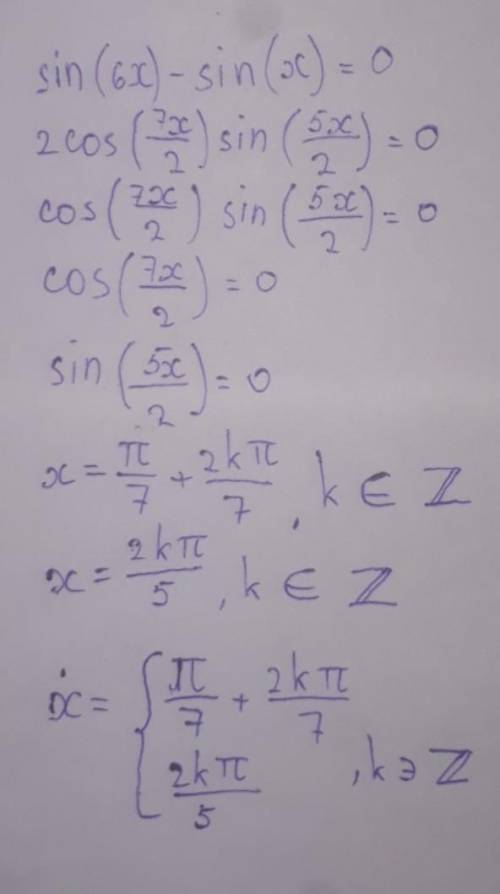 sin(6x) - sin(x) = 0
2cos(7x/2) sin(5x/2) = 0
cos(7x/2) sin(5x/2) = 0
cos(7x/2) = 0
sin(5x/2) = 0
x = π/7 + 2kπ/7, k ∈ ℤ
x = 2kπ/5, k ∈ ℤ
x = { π/7 + 2kπ/7
2kπ/5 , k ∋ ℤ